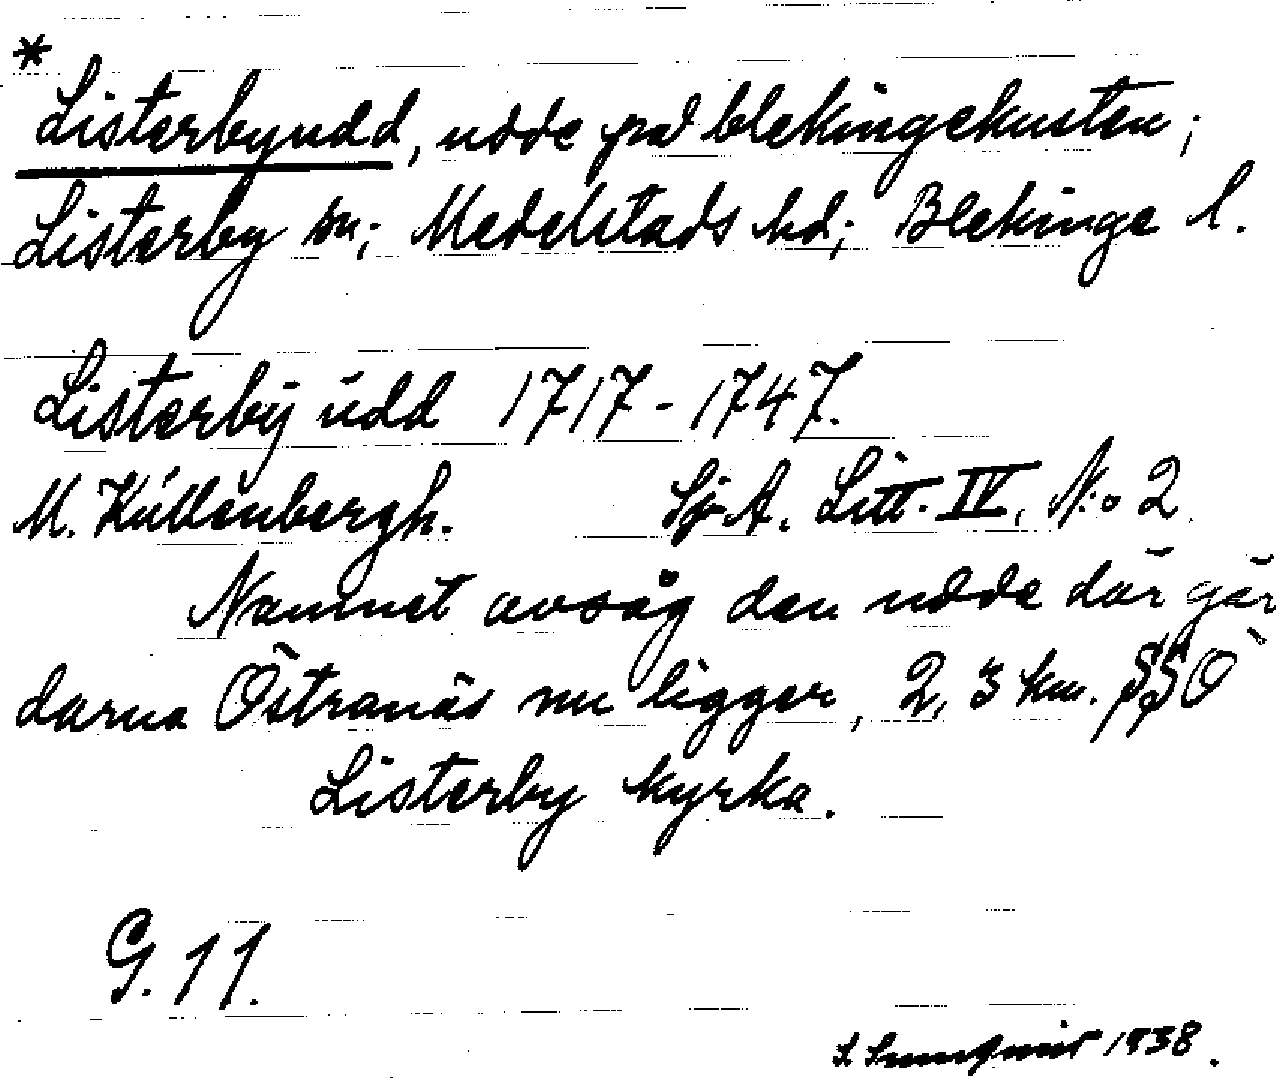 * Listerbyudd, udde på blekingekusten;
Listerby sn; Medelstads hd; Blekinge l.
Listerbÿ udd 1717-1747.
M. Kullenbergh. SjA. Litt. IV, N:o 2.
Namnet avsåg den udde där går
darna Östranäs nu ligger, 2,3 km. SSO
Listerby kyrka.
G. 11.
1938.